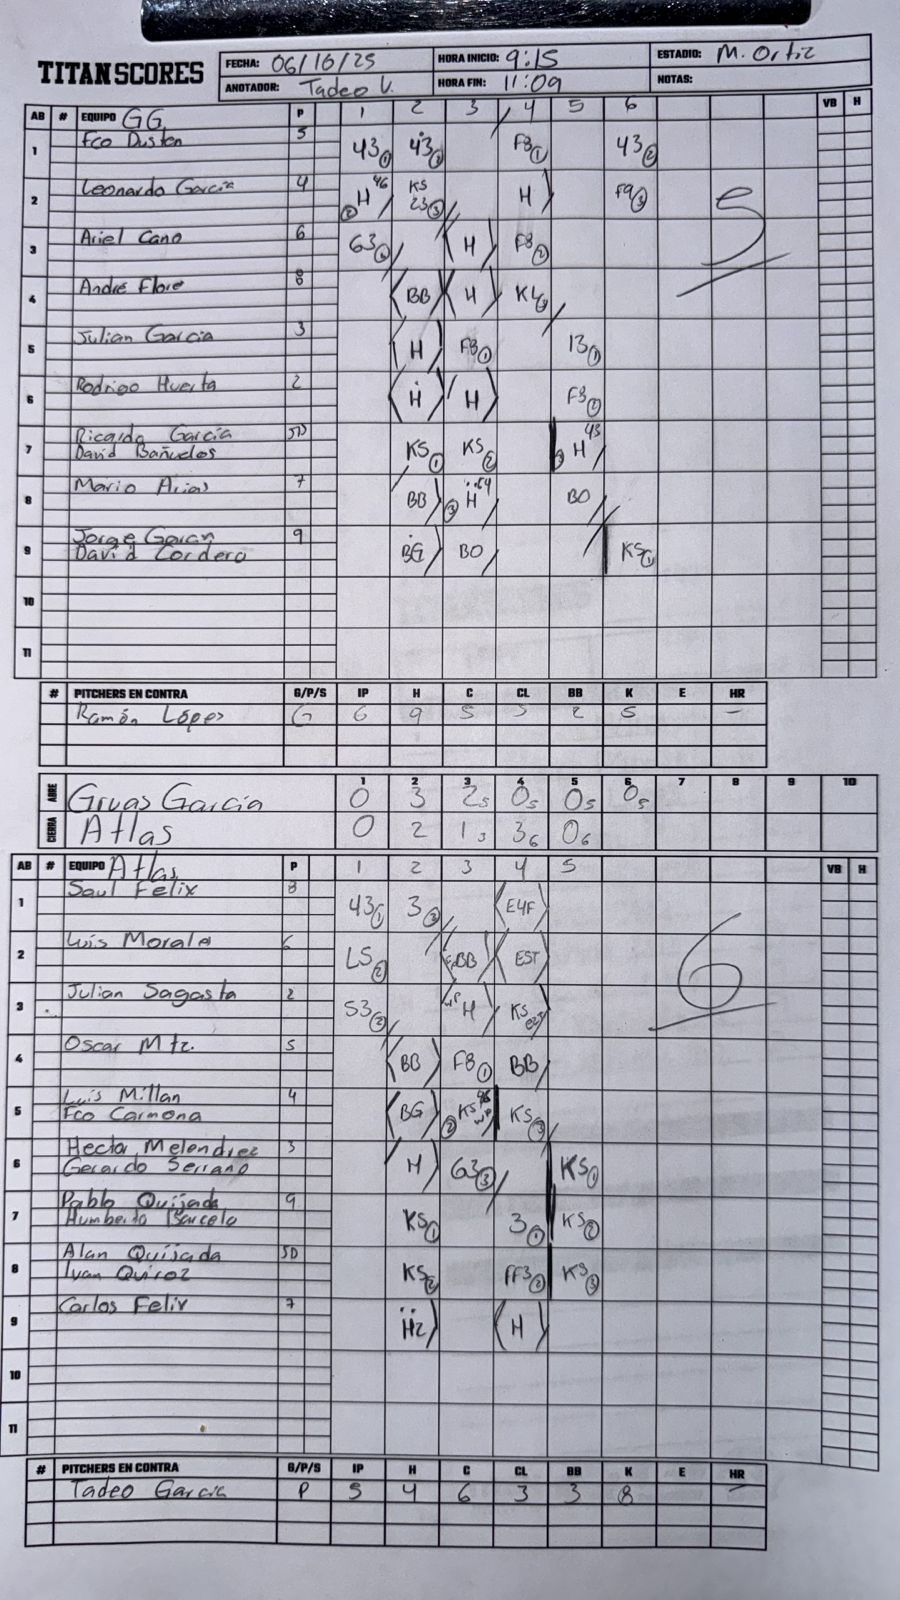 TITAN SCORES
FECHA: 06/16/25 HORA INICIO: 9:15 ESTADIO: M. Ortiz
ANOTADOR: Tadeo V. HORA FIN: 11:09 NOTAS:
AB # EQUIPO GG P 1 2 3 4 5 6 VB H
1 Fco Duston 5 43① 43② F8① 43②
2 Leonardo García 4 ②H46 KS 23③ H F9③
3 Ariel Cano 6 63③ H F8②
4 André Flore 8 BB H K4③
5 Julian Garcia 3 H F8① 13①
6 Rodrigo Huerta 2 H H F8②
7 Ricardo García SD KS① KS② ③H43
David Bañuelos
8 Mario Arias 7 BB ③H64 BO
9 Jorge 9 BG BO KS①
David Cordero
10
11
# PITCHERS EN CONTRA G/P/S IP H C CL BB K E HR
Ramón López G 6 9 5 5 2 5 –
ABRE 1 2 3 4 5 6 7 8 9 10
Gruas García 0 3 2 5 0 5 0 5 0 5
CIERRA Atlas 0 2 1 3 3 6 0 6
AB # EQUIPO Atlas P 1 2 3 4 5 VB H
1 Saul Felix 8 43① 3③ E4F
2 Luis Morale 6 L5② BB EST
3 Julian Sagasta 2 53② WP H KS
4 Oscar Mtz. 5 BB F8① BB
5 Luis Millan 4 BG ②KS WP KS③
Fco Carmona
6 Hector Melendrez 3 H 63③ KS①
Gerardo Serrano
7 Pablo Quijada 9 KS① 3① KS②
Humberto Barcelo
8 Alan Quijada SD KS② FF3② KS③
Ivan Quiroz
9 Carlos Felix 7 H2 H
10
11
6
# PITCHERS EN CONTRA G/P/S IP H C CL BB K E HR
Tadeo Garcia P 5 4 6 3 3 8 –